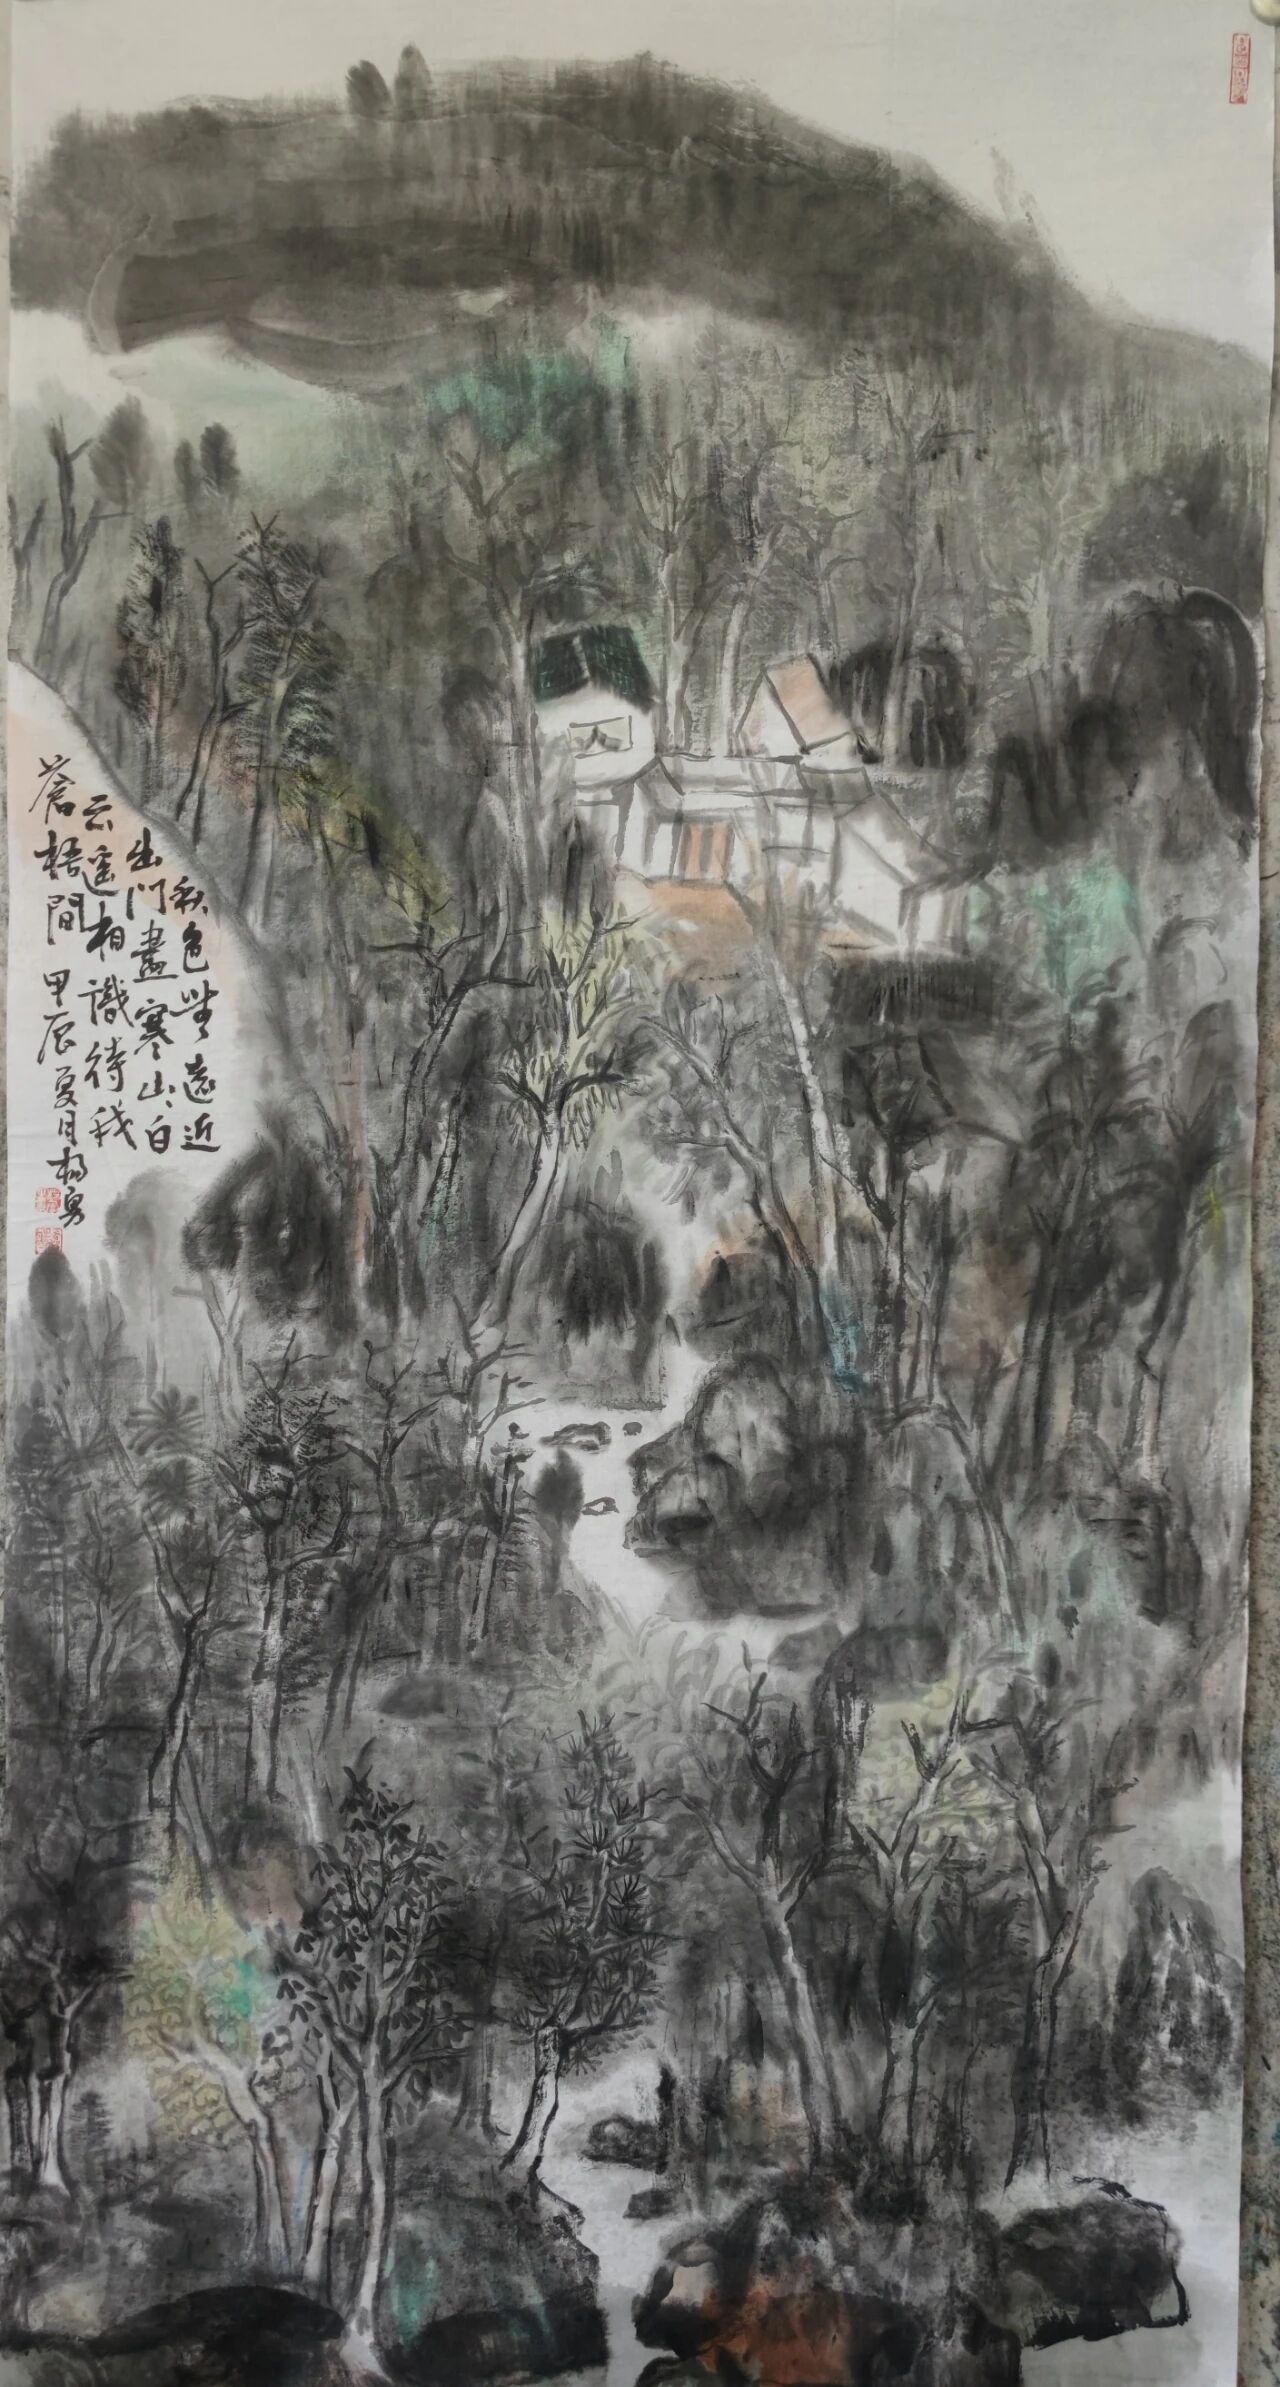 秋色無遠近
出門盡寒山白
云遥相識待我
蒼梧間 甲辰夏月 楊勇